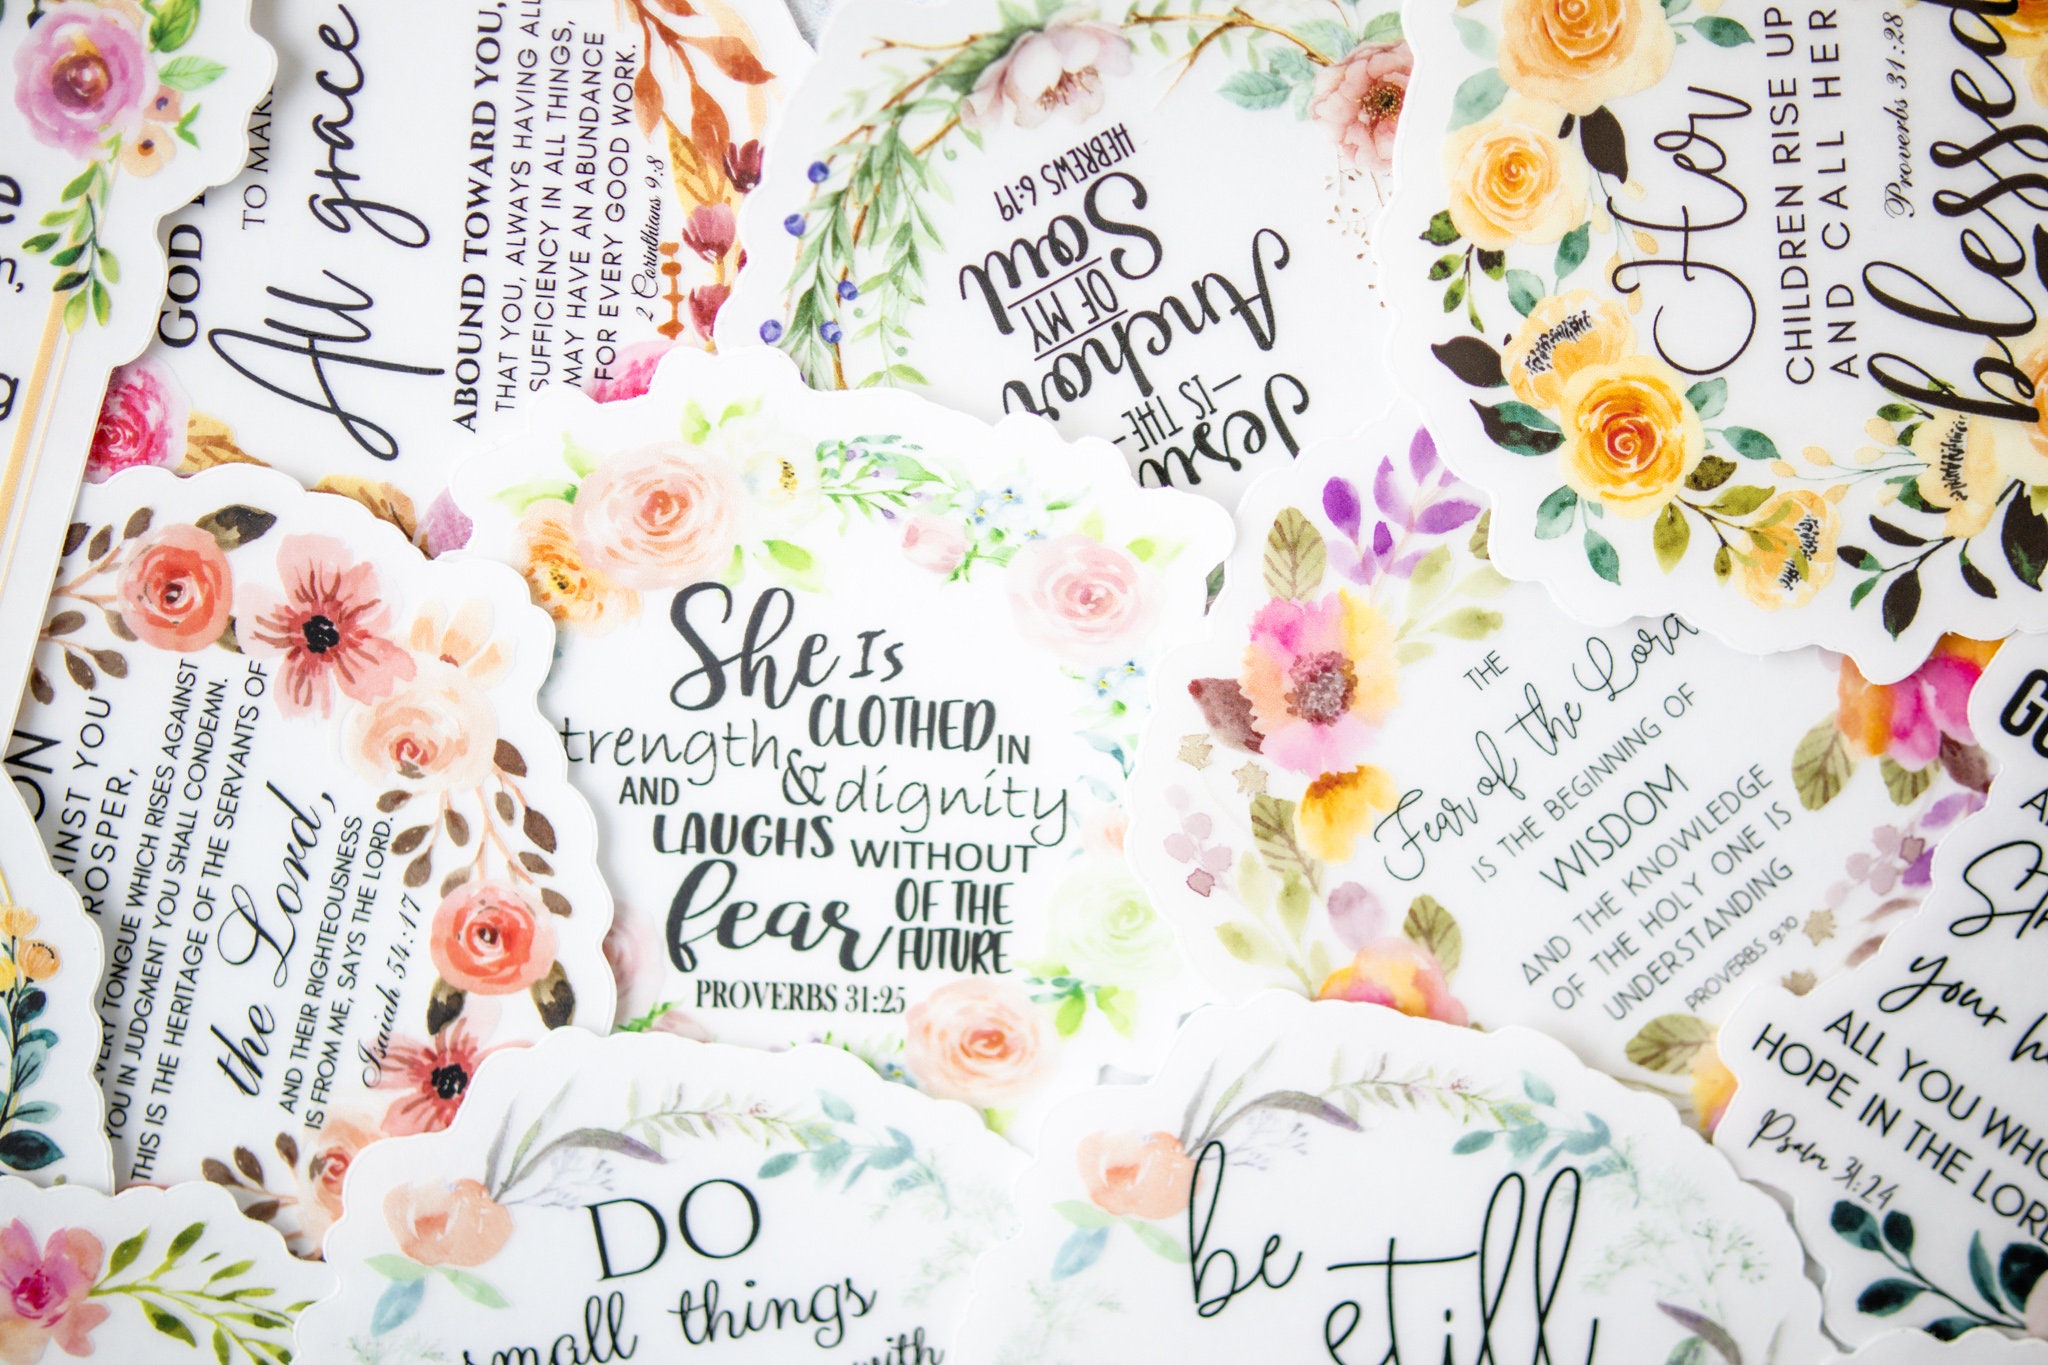 GOD
TO MAKE
All grace
ABOUND TOWARD YOU,
THAT YOU, ALWAYS HAVING ALL
SUFFICIENCY IN ALL THINGS,
MAY HAVE AN ABUNDANCE
FOR EVERY GOOD WORK.
2 Corinthians 9:8
Jesu
—IS THE—
Anchor
OF MY
Soul
HEBREWS 6:19
Her
CHILDREN RISE UP
AND CALL HER
blessed
Proverbs 31:28
AGAINST YOU
PROSPER,
EVERY TONGUE WHICH RISES AGAINST
YOU IN JUDGMENT YOU SHALL CONDEMN.
THIS IS THE HERITAGE OF THE SERVANTS OF
the Lord,
AND THEIR RIGHTEOUSNESS
IS FROM ME, SAYS THE LORD.
Isaiah 54:17
She Is
CLOTHED IN
trength &
AND dignity
LAUGHS WITHOUT
fear OF THE
FUTURE
PROVERBS 31:25
THE
Fear of the Lord
IS THE BEGINNING OF
WISDOM
AND THE KNOWLEDGE
OF THE HOLY ONE IS
UNDERSTANDING
PROVERBS 9:10
your h
ALL YOU WHO
HOPE IN THE LORD
Psalm 31:24
DO
small things
with
be
still